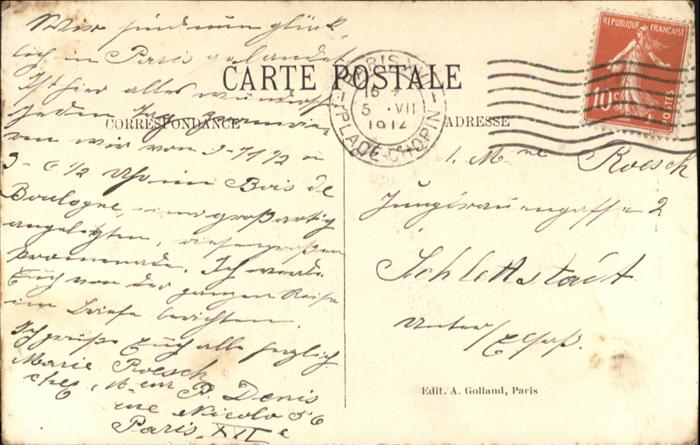 Wir sind nun glück-
lich in Paris gelandet
Ist hier alles wunderschön
Jeden Tag
wir von 9-11 1/2 u
3-6 1/2 Uhr im Bois de
Boulogne, großartig
angelegten, riesengroßen
Promenade. Ich werde
Euch von der ganzen Reise
im Briefe berichten.
Ich grüße Euch alle herzlich
Marie Roesch
chez Meur P. Denis
rue Nicolo
Paris XVIe
CARTE POSTALE
CORRESPONDANCE
ADRESSE
PARIS
5 VII
1912
PLACE CHOPIN
REPUBLIQUE FRANÇAISE
10c
POSTES
Mme Roesch
Jungfrauengasse 2
Schlettstadt
Unter/Elsaß.
Edit. A. Golland, Paris